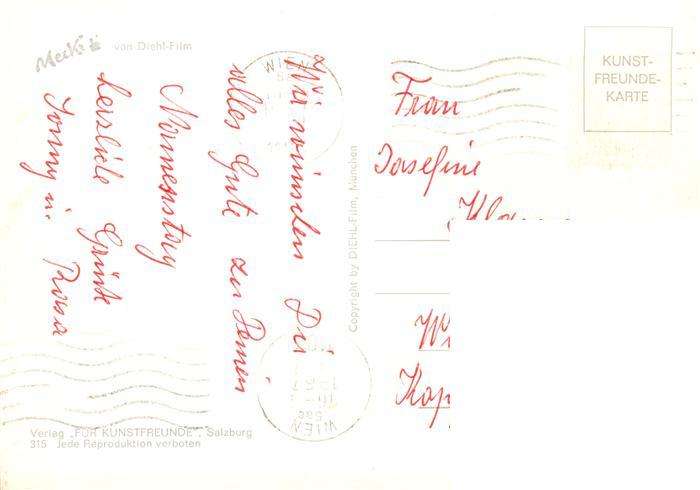 Mecki
von Diehl-Film
Wir wünschen Dir
alles Gute zu Deinen
Namenstag
herzliche Grüße
Tonny u. Rosa
Copyright by DIEHL-Film, München
KUNST-
FREUNDE-
KARTE
Frau
Josefine
WIEN
WIEN
Verlag „FÜR KUNSTFREUNDE“, Salzburg
315 Jede Reproduktion verboten